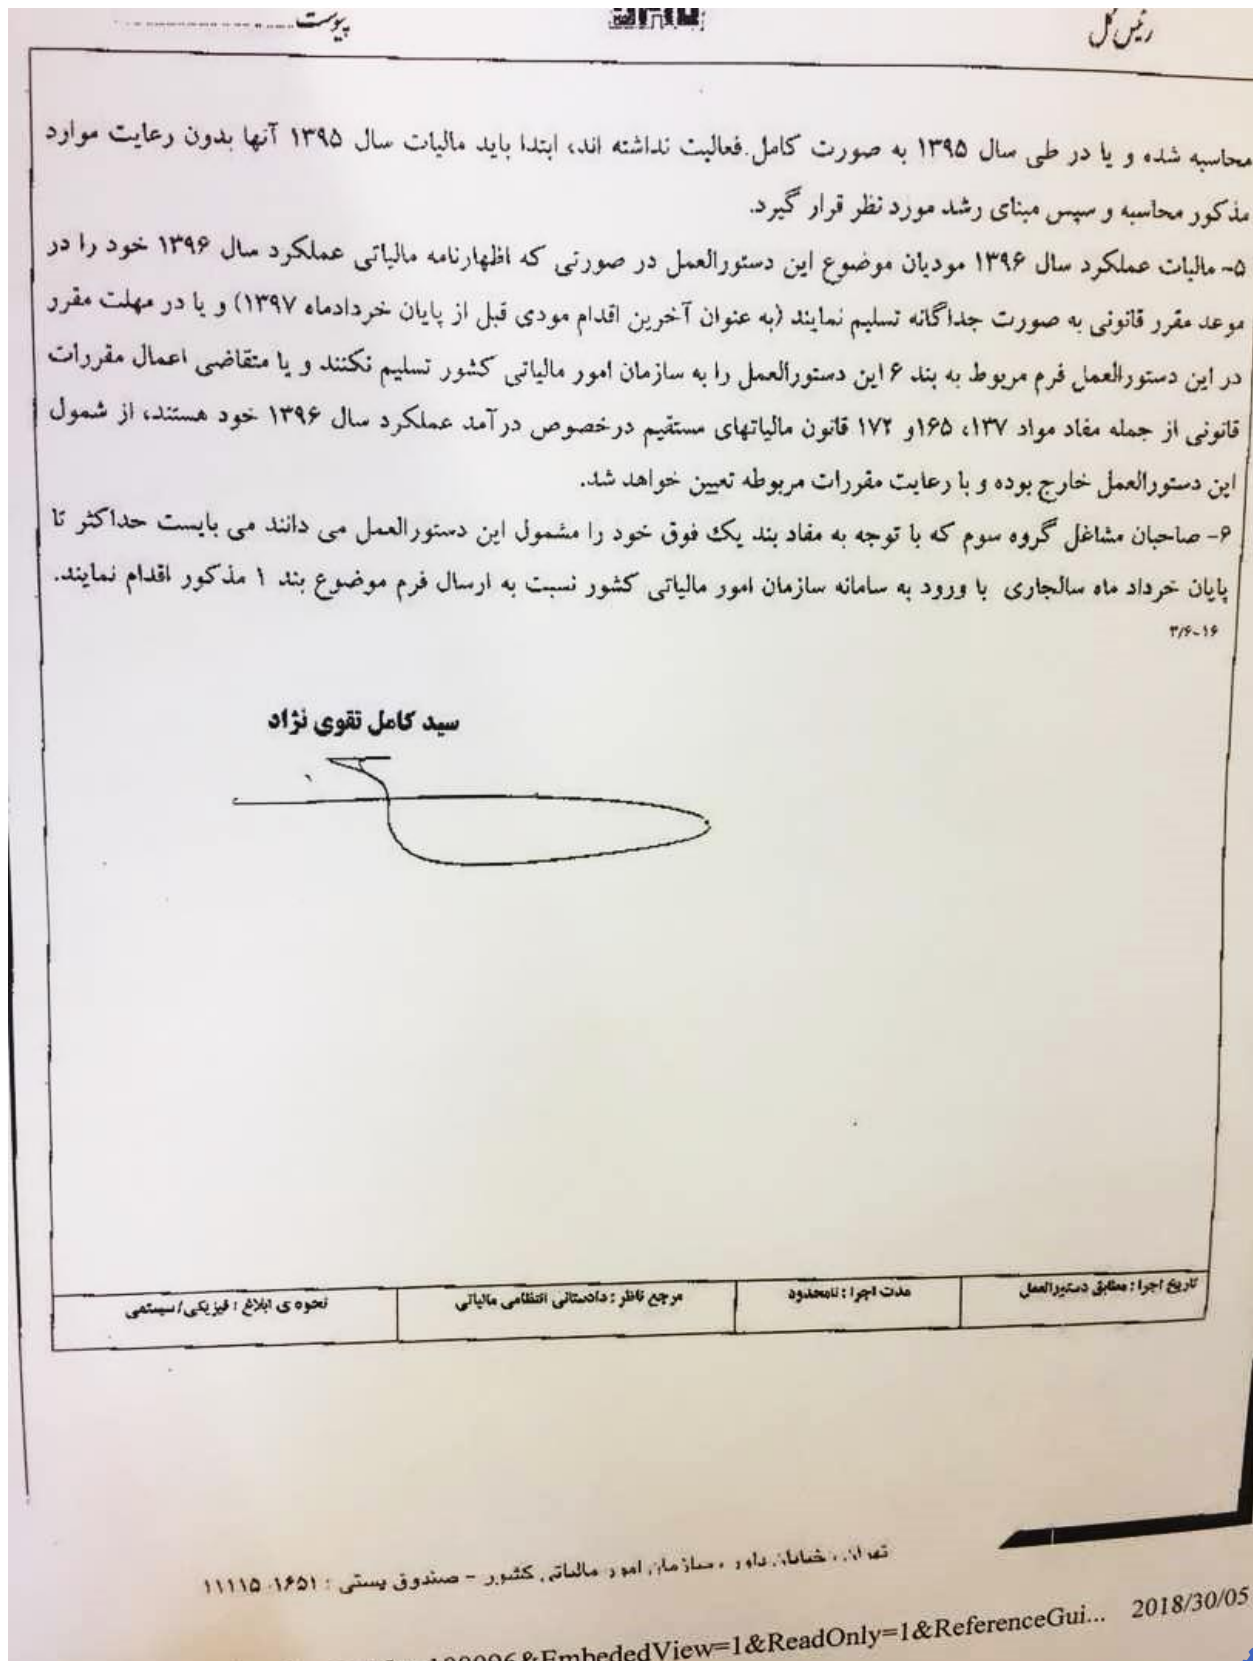 رئیس کل
پیوست
محاسبه شده و یا در طی سال ۱۳۹۵ به صورت کامل فعالیت نداشته اند، ابتدا باید مالیات سال ۱۳۹۵ آنها بدون رعایت موارد
مذکور محاسبه و سپس مبنای رشد مورد نظر قرار گیرد.
۵- مالیات عملکرد سال ۱۳۹۶ مودیان موضوع این دستورالعمل در صورتی که اظهارنامه مالیاتی عملکرد سال ۱۳۹۶ خود را در
موعد مقرر قانونی به صورت جداگانه تسلیم نمایند (به عنوان آخرین اقدام مودی قبل از پایان خردادماه ۱۳۹۷) و یا در مهلت مقرر
در این دستورالعمل فرم مربوط به بند ۶ این دستورالعمل را به سازمان امور مالیاتی کشور تسلیم نکنند و یا متقاضی اعمال مقررات
قانونی از جمله مفاد مواد ۱۳۷، ۱۶۵و ۱۷۲ قانون مالیاتهای مستقیم درخصوص درآمد عملکرد سال ۱۳۹۶ خود هستند، از شمول
این دستورالعمل خارج بوده و با رعایت مقررات مربوطه تعیین خواهد شد.
۶- صاحبان مشاغل گروه سوم که با توجه به مفاد بند یک فوق خود را مشمول این دستورالعمل می دانند می بایست حداکثر تا
پایان خرداد ماه سالجاری با ورود به سامانه سازمان امور مالیاتی کشور نسبت به ارسال فرم موضوع بند ۱ مذکور اقدام نمایند.
۳/۶-۱۶
سید کامل تقوی نژاد
تاریخ اجرا : مطابق دستورالعمل
مدت اجرا : نامحدود
مرجع ناظر : دادستانی انتظامی مالیاتی
نحوه ی ابلاغ : فیزیکی/سیستمی
تهران، خیابان داور، سازمان امور مالیاتی کشور - صندوق پستی : ۱۶۵۱-۱۱۱۱۵
&EmbededView=1&ReadOnly=1&ReferenceGui... 2018/30/05